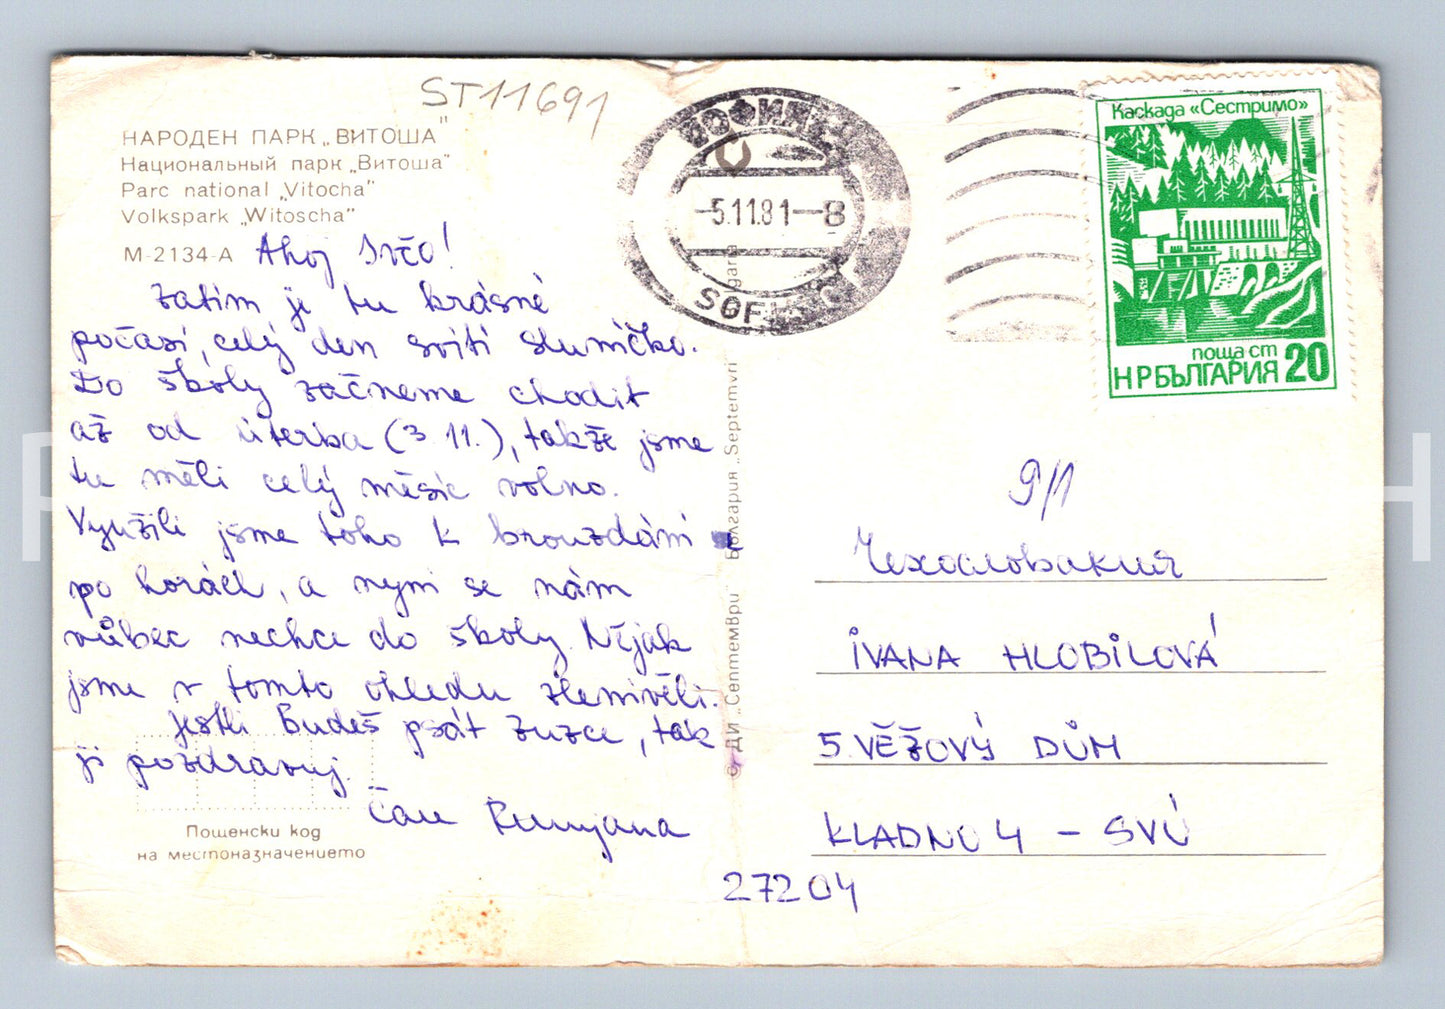 ST11691
НАРОДЕН ПАРК „ВИТОША"
Национальный парк „Витоша"
Parc national „Vitocha"
Volkspark „Witoscha"
М-2134-А
Ahoj Ivčo!
Zatím je tu krásné
počasí, celý den svítí sluníčko.
Do školy začneme chodit
až od úterka (3 11.), takže jsme
tu měli celý měsíc volno.
Využili jsme toho k brouzdání
po horách, a nyní se nám
vůbec nechce do školy. Nějak
jsme v tomto ohledu zlenivěli.
Jestli budeš psát Zuzce, tak
ji pozdravuj.
Čau Rumjana
Пощенски код
на местоназначението
© ДИ „Септември" България „Septemvri
garia
СОФИЯ
-5.11.81-8
SOFIA
Каскада «Сестримо»
поща ст 20
НРБЪЛГАРИЯ
9/1
Чехословакия
IVANA HLOBILOVÁ
5. VĚŽOVÝ DŮM
KLADNO 4 - SVÚ
27204